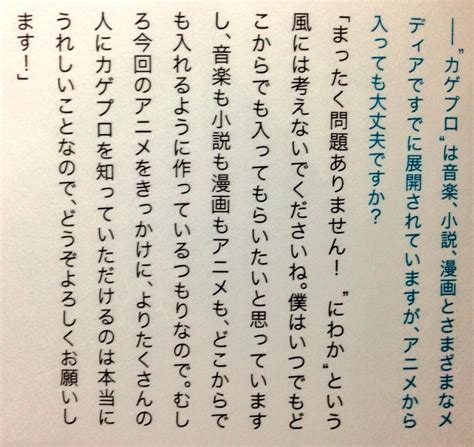 ──“カゲプロ”は音楽、小説、漫画とさまざまなメ
ディアですでに展開されていますが、アニメから
入っても大丈夫ですか？
「まったく問題ありません！　“にわか”という
風には考えないでくださいね。僕はいつでもど
こからでも入ってもらいたいと思っています
し、音楽も小説も漫画もアニメも、どこからで
も入れるように作っているつもりなので。むし
ろ今回のアニメをきっかけに、よりたくさんの
人にカゲプロを知っていただけるのは本当に
うれしいことなので、どうぞよろしくお願いし
ます！」